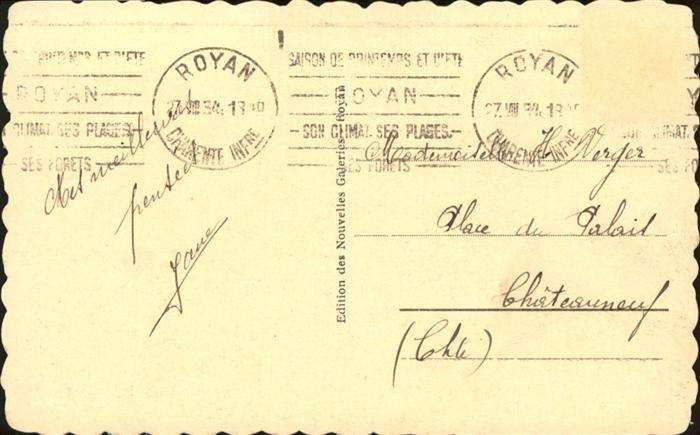 SAISON DE PRINTEMPS ET D'ETE
ROYAN
SON CLIMAT. SES PLAGES.
SES FORETS
ROYAN
27 VIII 34. 13
CHARENTE INFRE
SAISON DE PRINTEMPS ET D'ETE
ROYAN
SON CLIMAT. SES PLAGES.
SES FORETS
ROYAN
27. VIII 34. 13
CHARENTE INFRE
Mes meilleures
pensées
Jane
Edition des Nouvelles Galeries - Royan
Mademoiselle H. Verger
Place du Palais
Châteauneuf
(Chte)